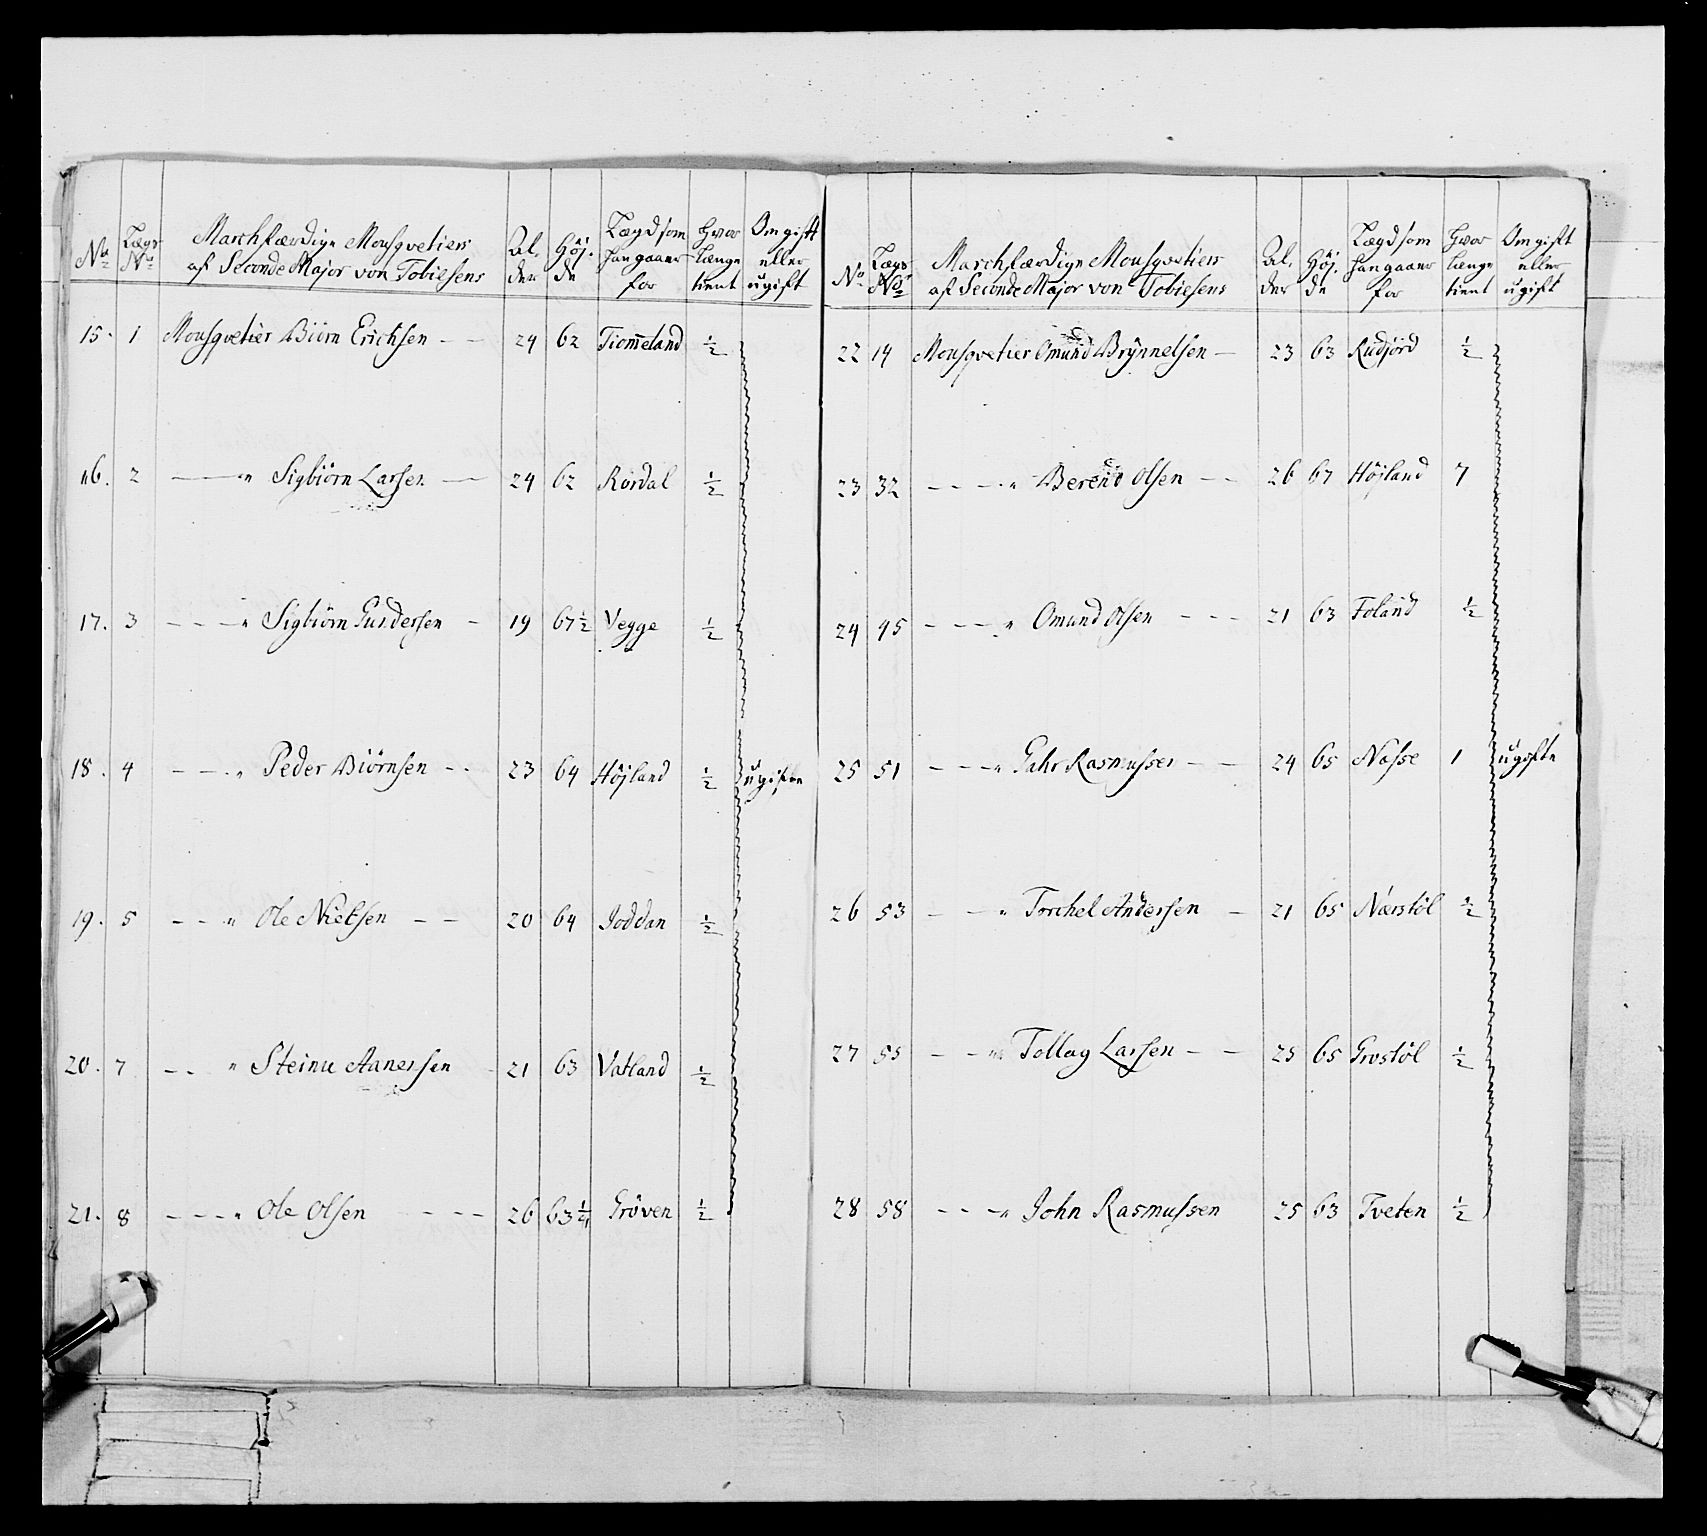 No Lægs No Marchfærdige Mousqvetiers af Seconde Major von Tobiesens Al. der Höj. de Lægd som han gaaer for Hvor længe tient Om gift eller ugift
15. 1 Mousqvetier Biörn Erichsen - - 24 62 Tiom̅eland ½
16. 2 - " Sigbiörn Larsen - 24 62 Rördal ½
17. 3 - - - " Sigbiörn Gundersen - 19 67½ Vegge ½
18. 4 - - - " Peder Biörnsen - - 23 64 Höjland ½ ugifte
19. 5 - - " Ole Nielsen - - 20 64 Joddan ½
20. 7 - - " Steinu Aanensen 21 63 Vatland ½
21. 8 - - - " Ole Olsen - - - - 26 63¼ Gröven ½
No Lægs No Marchfærdige Mousqvetiers af Seconde Major von Tobiesens Al. der Höj. de Lægd som han gaaer for Hvor længe tient Om gift eller ugift
22 14 Mousqvetier Omund Brÿnnelsen - 23 63 Rudjord ½
23 32 - - - " Berend Olsen - - 26 67 Höjland 7
24 45 - - - " Omund Olsen - - - 21 63 Foland ½
25 51 - - - " Gahr Rasmussen - - 24 65 Næsse 1 ugifte
26 53 - - " Torchel Andersen - 21 65 Nærstöl ½
27 55 - - " Tollag Larsen - - 25 65 Grostöl ½
28 58 - - - " John Rasmussen 25 63 Tveten ½